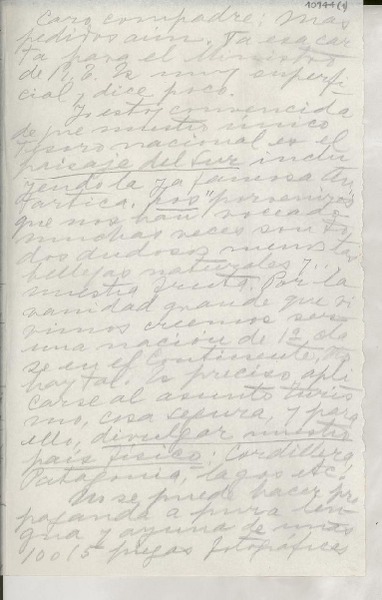 10944(1)
Caro, compadre; mas
pedidos aún. Va esa car
ta para el Ministro
de R. E. Es muy superfi
cial y dice poco.
Yo estoy convencida
de que nuestro único
tesoro nacional es el
paisaje del sur inclu
yendo la ya famosa An
tártica. Los "porvenires"
que nos han voceado
muchas veces son to
dos dudosos menos las
bellezas naturales y...
nuestra fruta. Por la
vanidad grande que vi
vimos creemos ser
una nación de 1ª cla
se en el Continente, no
hay tal. Es preciso apli
carse al asunto turis
mo, cosa segura, y para
ello, divulgar nuestro
país físico: Cordillera,
Patagonia, lagos etc.
No se puede hacer pro
paganda a pura len
gua y ayuna de unas
10 o 15 piezas fotográficas